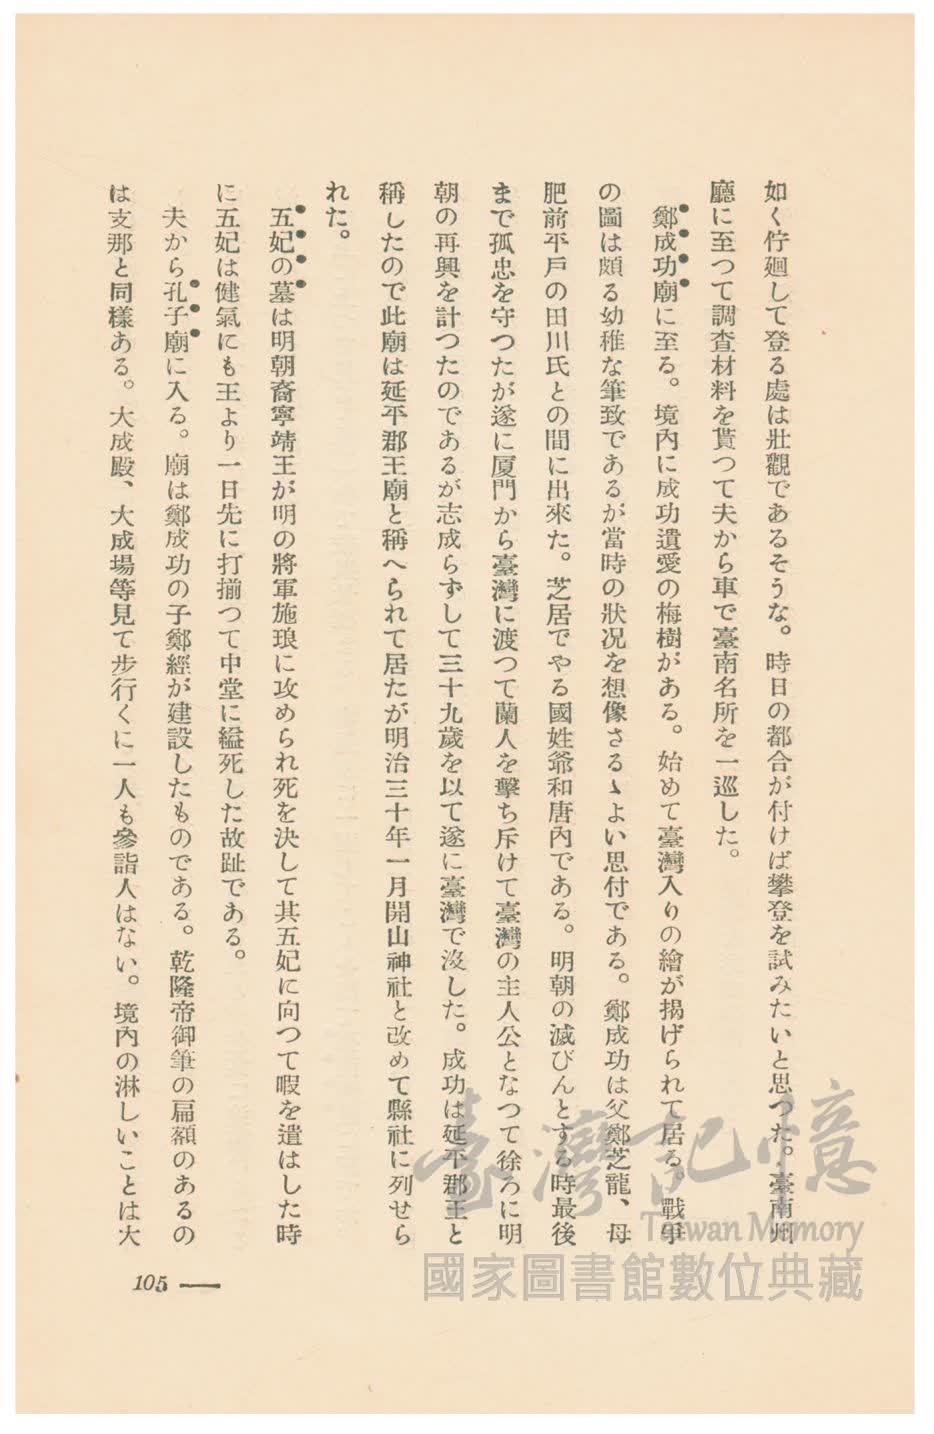 如く佇廻して登る處は壯觀であるそうな。時日の都合が付けば攀登を試みたいと思つた。臺南州
廳に至つて調査材料を貰つて夫から車で臺南名所を一巡した。
鄭成功廟に至る。境內に成功遺愛の梅樹がある。始めて臺灣入りの繪が揭げられて居る。戰甲
の圖は頗る幼稚な筆致であるが當時の狀況を想像さるゝよい思付である。鄭成功は父鄭芝龍、母
肥前平戶の田川氏との間に出來た。芝居でやる國姓爺和唐內である。明朝の滅びんとする時最後
まで孤忠を守つたが遂に厦門から臺灣に渡つて蘭人を擊ち斥けて臺灣の主人公となつて徐ろに明
朝の再興を計つたのであるが志成らずして三十九歲を以て遂に臺灣で沒した。成功は延平郡王と
稱したので此廟は延平郡王廟と稱へられて居たが明治三十年一月開山神社と改めて縣社に列せら
れた。
五妃の墓は明朝裔寧靖王が明の將軍施琅に攻められ死を決して其五妃に向つて暇を遣はした時
に五妃は健氣にも王より一日先に打揃つて中堂に縊死した故趾である。
夫から孔子廟に入る。廟は鄭成功の子鄭經が建設したものである。乾隆帝御筆の扁額のあるの
は支那と同樣ある。大成殿、大成場等見て步行くに一人も參詣人はない。境內の淋しいことは大
105
臺灣記憶
Taiwan Memory
國家圖書館數位典藏